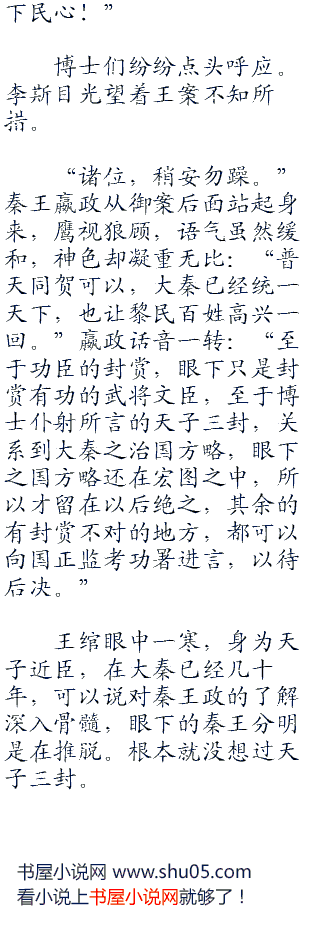 下民心！”
博士们纷纷点头呼应。
李斯目光望着王案不知所
措。
“诸位，稍安勿躁。”
秦王嬴政从御案后面站起身
来，鹰视狼顾，语气虽然缓
和，神色却凝重无比：“普
天同贺可以，大秦已经统一
天下，也让黎民百姓高兴一
回。”嬴政话音一转：“至
于功臣的封赏，眼下只是封
赏有功的武将文臣，至于博
士仆射所言的天子三封，关
系到大秦之治国方略，眼下
之国方略还在宏图之中，所
以才留在以后绝之，其余的
有封赏不对的地方，都可以
向国正监考功署进言，以待
后决。”
王绾眼中一寒，身为天
子近臣，在大秦已经几十
年，可以说对秦王政的了解
深入骨髓，眼下的秦王分明
是在推脱。根本就没想过天
子三封。
书屋小说网 www.shu05.com
看小说上书屋小说网就够了！